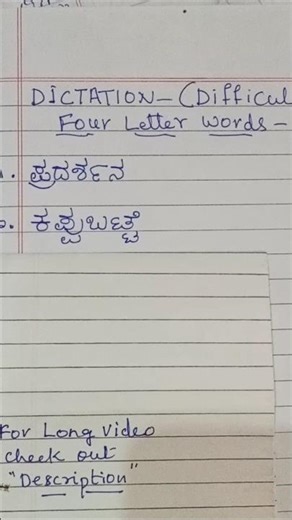 DICTATION - (Difficul
Four Letter words -
ಪ್ರದರ್ಶನ
ಕಪ್ಪುಬಟ್ಟೆ
For Long Video
check out
"Description"